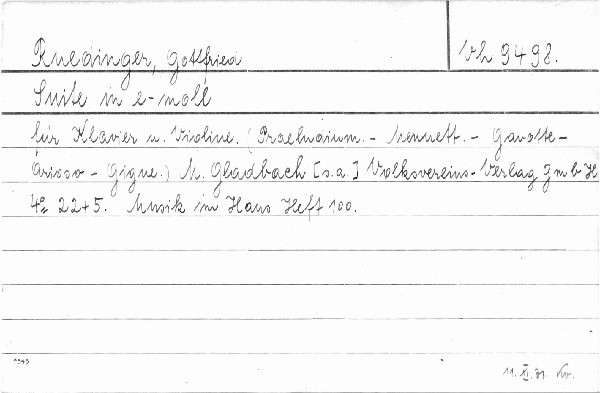 Ruedinger, Gottfried
Vh 9498.
Suite in e-moll
für Klavier u. Violine. (Praeludium. - Menuett. - Gavotte -
Arioso - Gigue.) M. Gladbach [s.a.] Volksvereins-Verlag GmbH
4º 22+5. Musik im Haus Heft 100.
11. XI. 31.